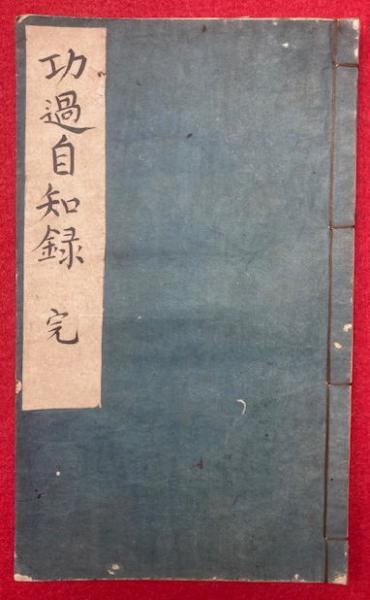 功過自知録 完